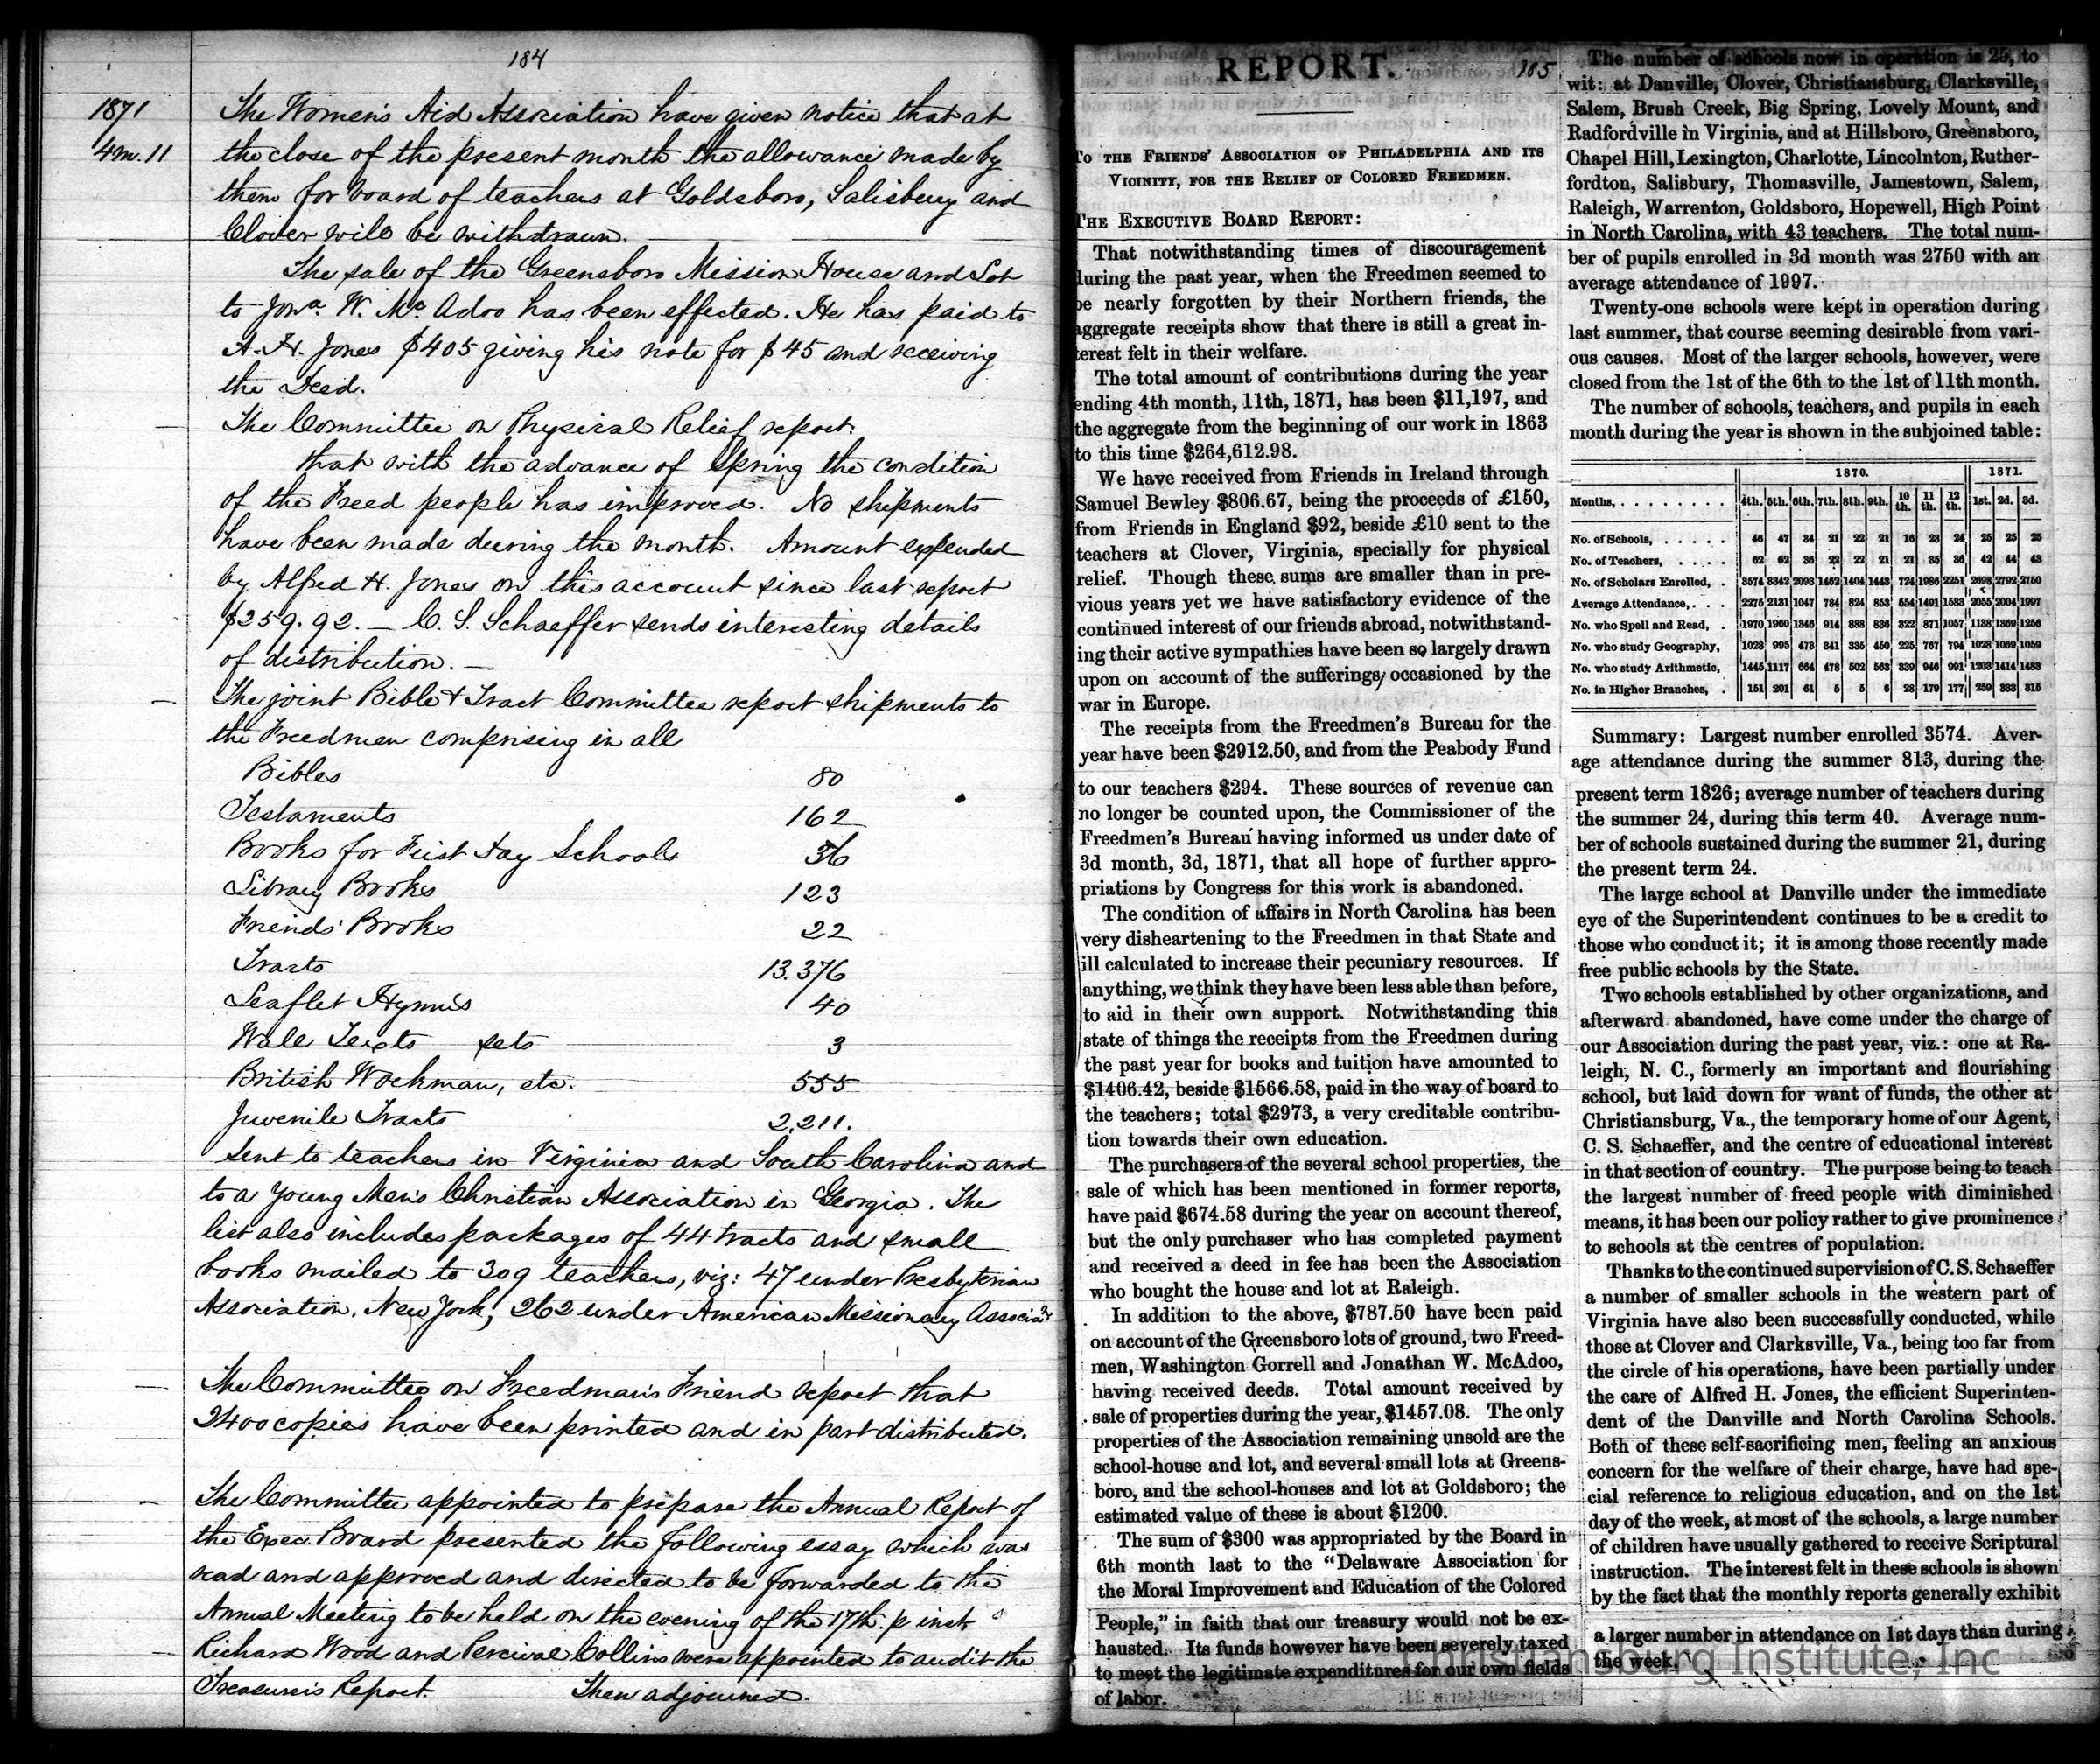 184
1871
4m. 11
The Women's Aid Association have given notice that at
the close of the present month the allowance made by
them for board of teachers at Goldsboro, Salisbury and
Clover will be withdrawn.
The sale of the Greensboro Mission House and Lot
to Jona. W. McAdoo has been effected. He has paid to
A. H. Jones $405 giving his note for $45 and receiving
the Deed.
The Committee on Physical Relief report.
that with the advance of Spring the condition
of the Freed people has improved. No shipments
have been made during the month. Amount expended
by Alfred H. Jones on this account since last report
$259.92. — C. S. Schaeffer sends interesting details
of distribution. —
The joint Bible & Tract Committee report shipments to
the Freedmen comprising in all
Bibles 80
Testaments 162
Books for First day Schools 36
Library Books 123
Friends' Books 22
Tracts 13.376
Leaflet Hymns 40
Wall Texts sets 3
British Workman, etc. 555
Juvenile Tracts 2,211.
Sent to teachers in Virginia and South Carolina and
to a Young Men's Christian Association in Georgia. The
list also includes packages of 44 tracts and small
books mailed to 309 teachers, viz: 47 under Presbyterian
Association, New York, 262 under American Missionary Associatn
The Committee on Freedman's Friend report that
2400 copies have been printed and in part distributed.
The Committee appointed to prepare the Annual Report of
the Exec. Board presented the following essay which was
read and approved and directed to be forwarded to the
Annual Meeting to be held on the evening of the 17th. p inst
Richard Wood and Percival Collins were appointed to audit the
Treasurer's Report. Then adjourned.
REPORT. 185
To the Friends' Association of Philadelphia and its
Vicinity, for the Relief of Colored Freedmen.
The Executive Board Report:
That notwithstanding times of discouragement
during the past year, when the Freedmen seemed to
be nearly forgotten by their Northern friends, the
aggregate receipts show that there is still a great in-
terest felt in their welfare.
The total amount of contributions during the year
ending 4th month, 11th, 1871, has been $11,197, and
the aggregate from the beginning of our work in 1863
to this time $264,612.98.
We have received from Friends in Ireland through
Samuel Bewley $806.67, being the proceeds of £150,
from Friends in England $92, beside £10 sent to the
teachers at Clover, Virginia, specially for physical
relief. Though these sums are smaller than in pre-
vious years yet we have satisfactory evidence of the
continued interest of our friends abroad, notwithstand-
ing their active sympathies have been so largely drawn
upon on account of the sufferings occasioned by the
war in Europe.
The receipts from the Freedmen's Bureau for the
year have been $2912.50, and from the Peabody Fund
to our teachers $294. These sources of revenue can
no longer be counted upon, the Commissioner of the
Freedmen's Bureau having informed us under date of
3d month, 3d, 1871, that all hope of further appro-
priations by Congress for this work is abandoned.
The condition of affairs in North Carolina has been
very disheartening to the Freedmen in that State and
ill calculated to increase their pecuniary resources. If
anything, we think they have been less able than before,
to aid in their own support. Notwithstanding this
state of things the receipts from the Freedmen during
the past year for books and tuition have amounted to
$1406.42, beside $1566.58, paid in the way of board to
the teachers; total $2973, a very creditable contribu-
tion towards their own education.
The purchasers of the several school properties, the
sale of which has been mentioned in former reports,
have paid $674.58 during the year on account thereof,
but the only purchaser who has completed payment
and received a deed in fee has been the Association
who bought the house and lot at Raleigh.
In addition to the above, $787.50 have been paid
on account of the Greensboro lots of ground, two Freed-
men, Washington Gorrell and Jonathan W. McAdoo,
having received deeds. Total amount received by
sale of properties during the year, $1457.08. The only
properties of the Association remaining unsold are the
school-house and lot, and several small lots at Greens-
boro, and the school-houses and lot at Goldsboro; the
estimated value of these is about $1200.
The sum of $300 was appropriated by the Board in
6th month last to the "Delaware Association for
the Moral Improvement and Education of the Colored
People," in faith that our treasury would not be ex-
hausted. Its funds however have been severely taxed
to meet the legitimate expenditures for our own fields
of labor.
The number of schools now in operation is 25, to
wit: at Danville, Clover, Christiansburg, Clarksville,
Salem, Brush Creek, Big Spring, Lovely Mount, and
Radfordville in Virginia, and at Hillsboro, Greensboro,
Chapel Hill, Lexington, Charlotte, Lincolnton, Ruther-
fordton, Salisbury, Thomasville, Jamestown, Salem,
Raleigh, Warrenton, Goldsboro, Hopewell, High Point
in North Carolina, with 43 teachers. The total num-
ber of pupils enrolled in 3d month was 2750 with an
average attendance of 1997.
Twenty-one schools were kept in operation during
last summer, that course seeming desirable from vari-
ous causes. Most of the larger schools, however, were
closed from the 1st of the 6th to the 1st of 11th month.
The number of schools, teachers, and pupils in each
month during the year is shown in the subjoined table:
1870. 1871.
Months, . . . . . . . . 4th. 5th. 6th. 7th. 8th. 9th. 10th. 11th. 12th. 1st. 2d. 3d.
No. of Schools, . . . . . 46 47 34 21 22 21 16 23 24 25 25 25
No. of Teachers, . . . . 62 62 36 22 22 21 21 35 36 42 44 43
No. of Scholars Enrolled, . 3574 3342 2093 1462 1404 1443 724 1986 2251 2698 2792 2750
Average Attendance, . . . 2275 2131 1047 784 824 853 554 1491 1583 2055 2004 1997
No. who Spell and Read, . 1970 1960 1346 914 888 836 322 871 1057 1138 1369 1256
No. who study Geography, 1028 995 473 341 335 460 225 767 794 1028 1069 1059
No. who study Arithmetic, 1445 1117 664 478 502 563 339 946 991 1203 1414 1483
No. in Higher Branches, . 151 201 61 5 5 6 28 179 177 259 333 315
Summary: Largest number enrolled 3574. Aver-
age attendance during the summer 813, during the
present term 1826; average number of teachers during
the summer 24, during this term 40. Average num-
ber of schools sustained during the summer 21, during
the present term 24.
The large school at Danville under the immediate
eye of the Superintendent continues to be a credit to
those who conduct it; it is among those recently made
free public schools by the State.
Two schools established by other organizations, and
afterward abandoned, have come under the charge of
our Association during the past year, viz.: one at Ra-
leigh, N. C., formerly an important and flourishing
school, but laid down for want of funds, the other at
Christiansburg, Va., the temporary home of our Agent,
C. S. Schaeffer, and the centre of educational interest
in that section of country. The purpose being to teach
the largest number of freed people with diminished
means, it has been our policy rather to give prominence
to schools at the centres of population.
Thanks to the continued supervision of C. S. Schaeffer
a number of smaller schools in the western part of
Virginia have also been successfully conducted, while
those at Clover and Clarksville, Va., being too far from
the circle of his operations, have been partially under
the care of Alfred H. Jones, the efficient Superinten-
dent of the Danville and North Carolina Schools.
Both of these self-sacrificing men, feeling an anxious
concern for the welfare of their charge, have had spe-
cial reference to religious education, and on the 1st
day of the week, at most of the schools, a large number
of children have usually gathered to receive Scriptural
instruction. The interest felt in these schools is shown
by the fact that the monthly reports generally exhibit
a larger number in attendance on 1st days than during
the week.
Christiansburg Institute, Inc